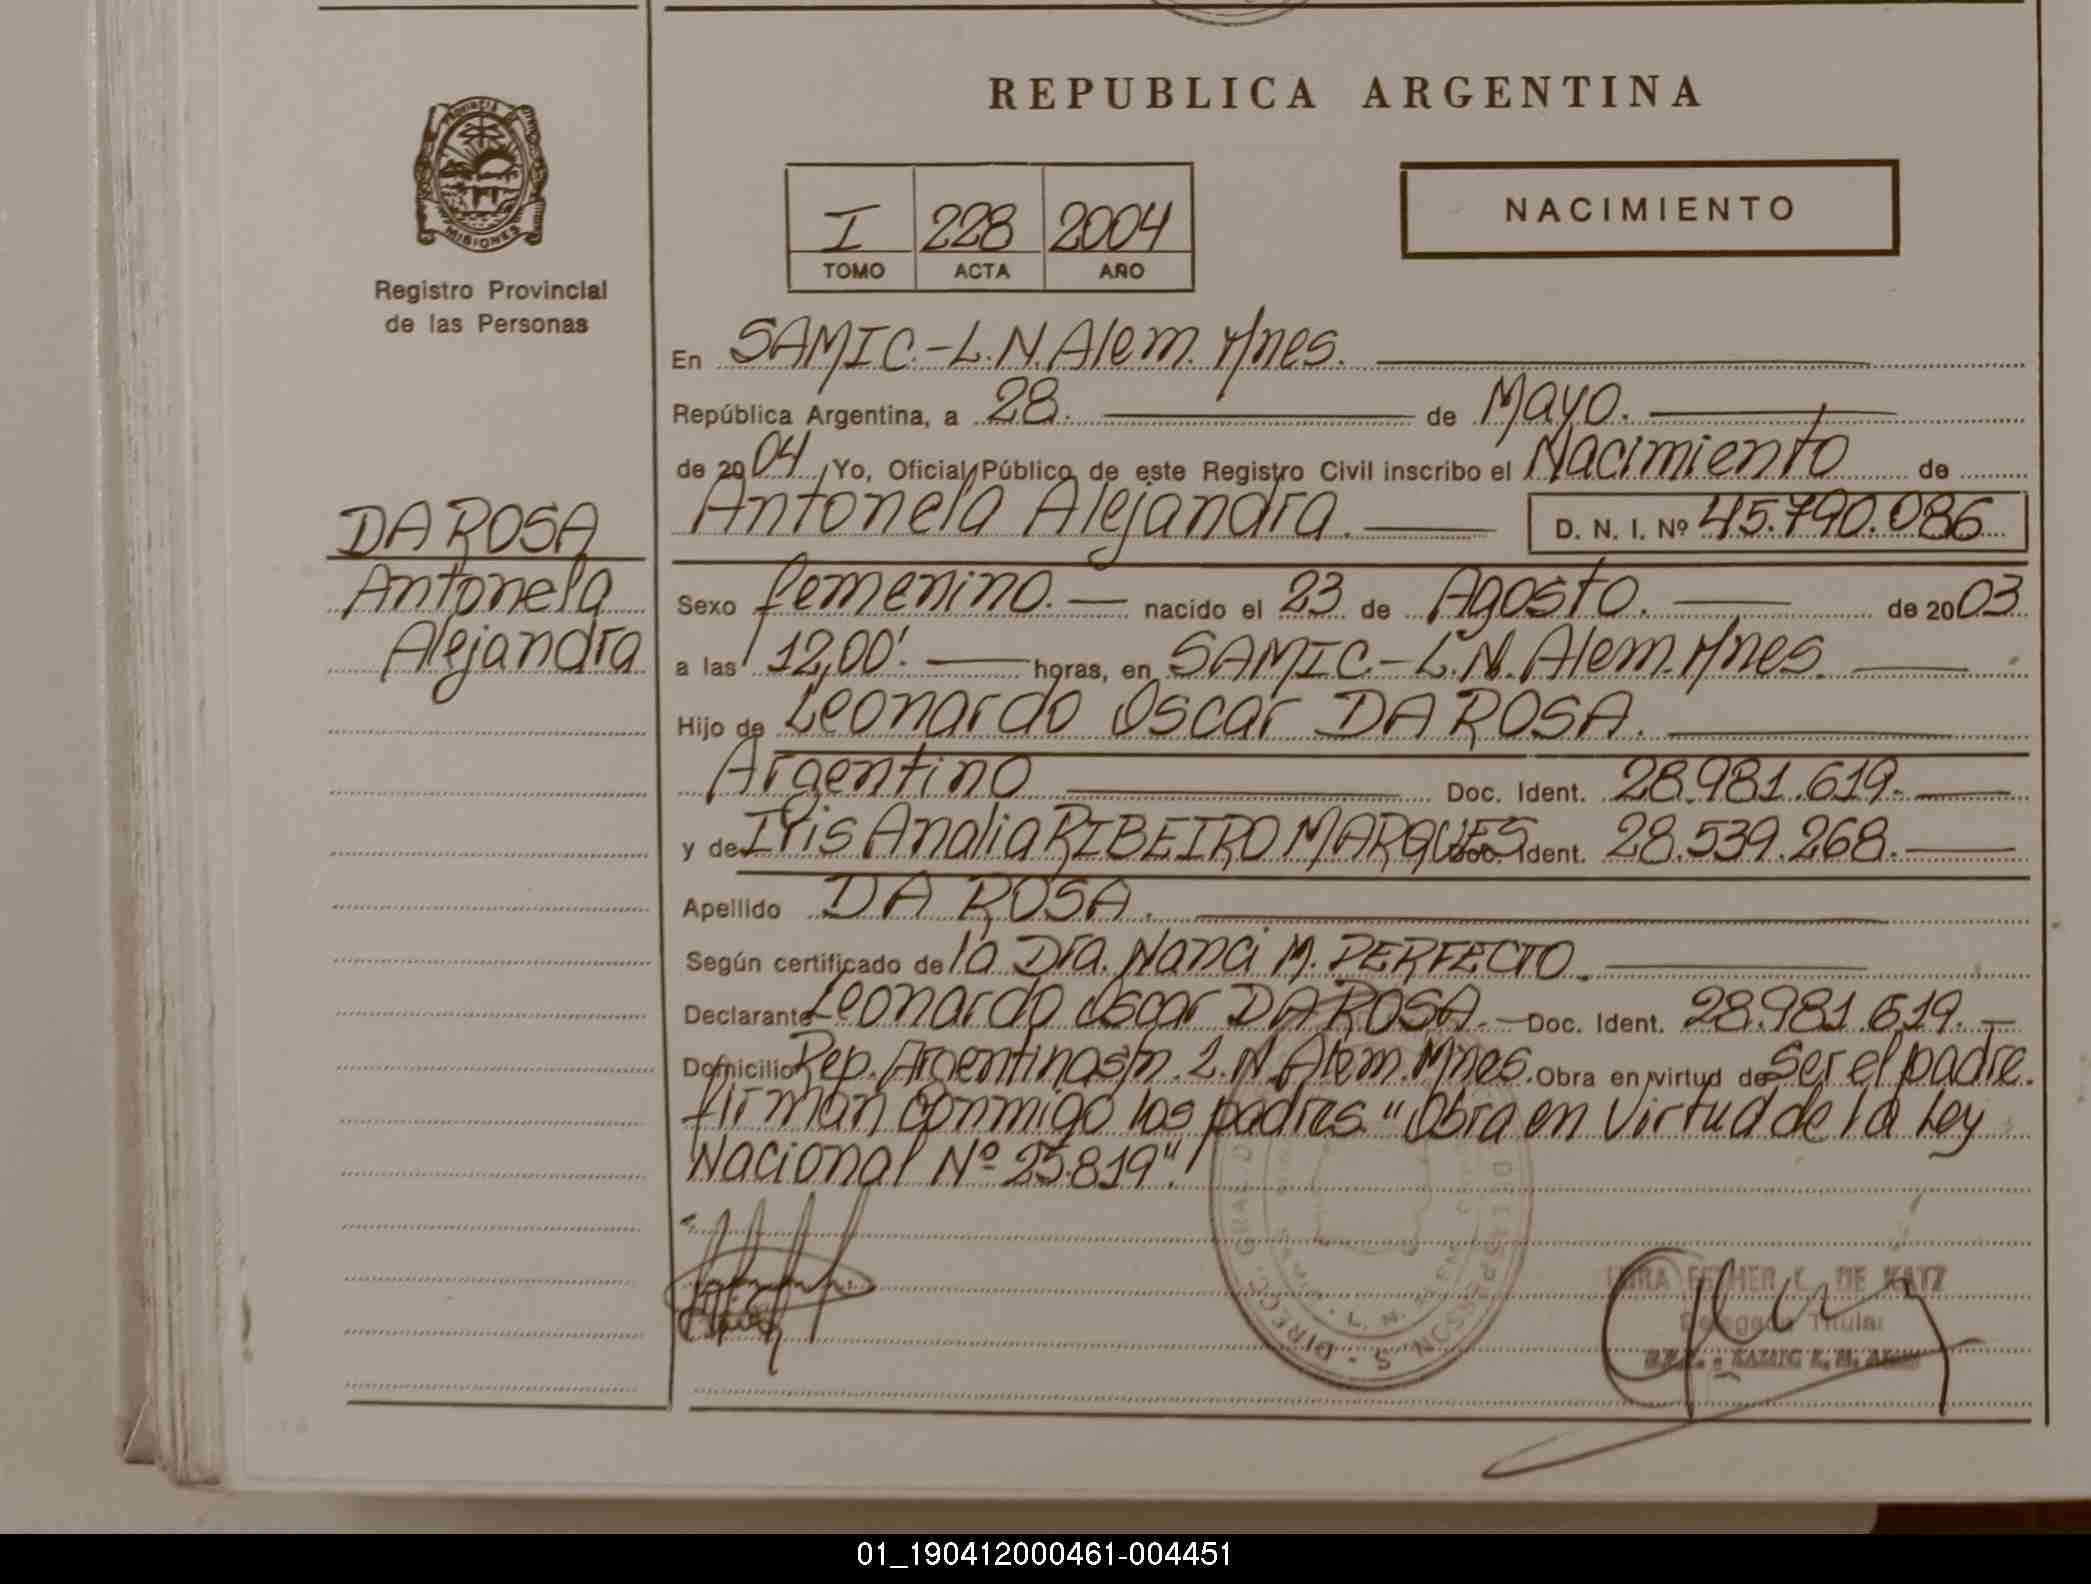 REPUBLICA ARGENTINA
PROVINCIA DE MISIONES
Registro Provincial
de las Personas
I 228 2004
TOMO ACTA AÑO
NACIMIENTO
En SAMIC.-L.N.Alem. Mnes.
República Argentina, a 28. de Mayo.
de 2004, Yo, Oficial Público de este Registro Civil inscribo el Nacimiento de
Antonela Alejandra. D. N. I. Nº 45.790.086
DA ROSA
Antonela
Alejandra
Sexo femenino. nacido el 23 de Agosto. de 2003
a las 12,00'. horas, en SAMIC.-L.N.Alem.Mnes.
Hijo de Leonardo Oscar DA ROSA.
Argentino Doc. Ident. 28.981.619.
y de Iris Analia RIBEIRO MARQUES Doc. Ident. 28.539.268.
Apellido DA ROSA.
Según certificado de la Dra. Nanci M. PERFECTO.
Declarante Leonardo Oscar DA ROSA. Doc. Ident. 28.981.619.
Domicilio Rep. Argentina s/n. L.N.Alem.Mnes. Obra en virtud de ser el padre.
firman conmigo los padres. "Obra en Virtud de la Ley
Nacional Nº 25.819".
ESTHER L. DE KATZ
Delegada Titular
SAMIC L. N. ALEM
01_190412000461-004451